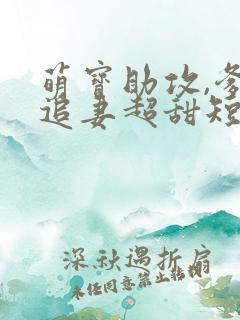 萌宝助攻,爹
追妻超甜短
深秋遇折扇
未任同意禁止转载